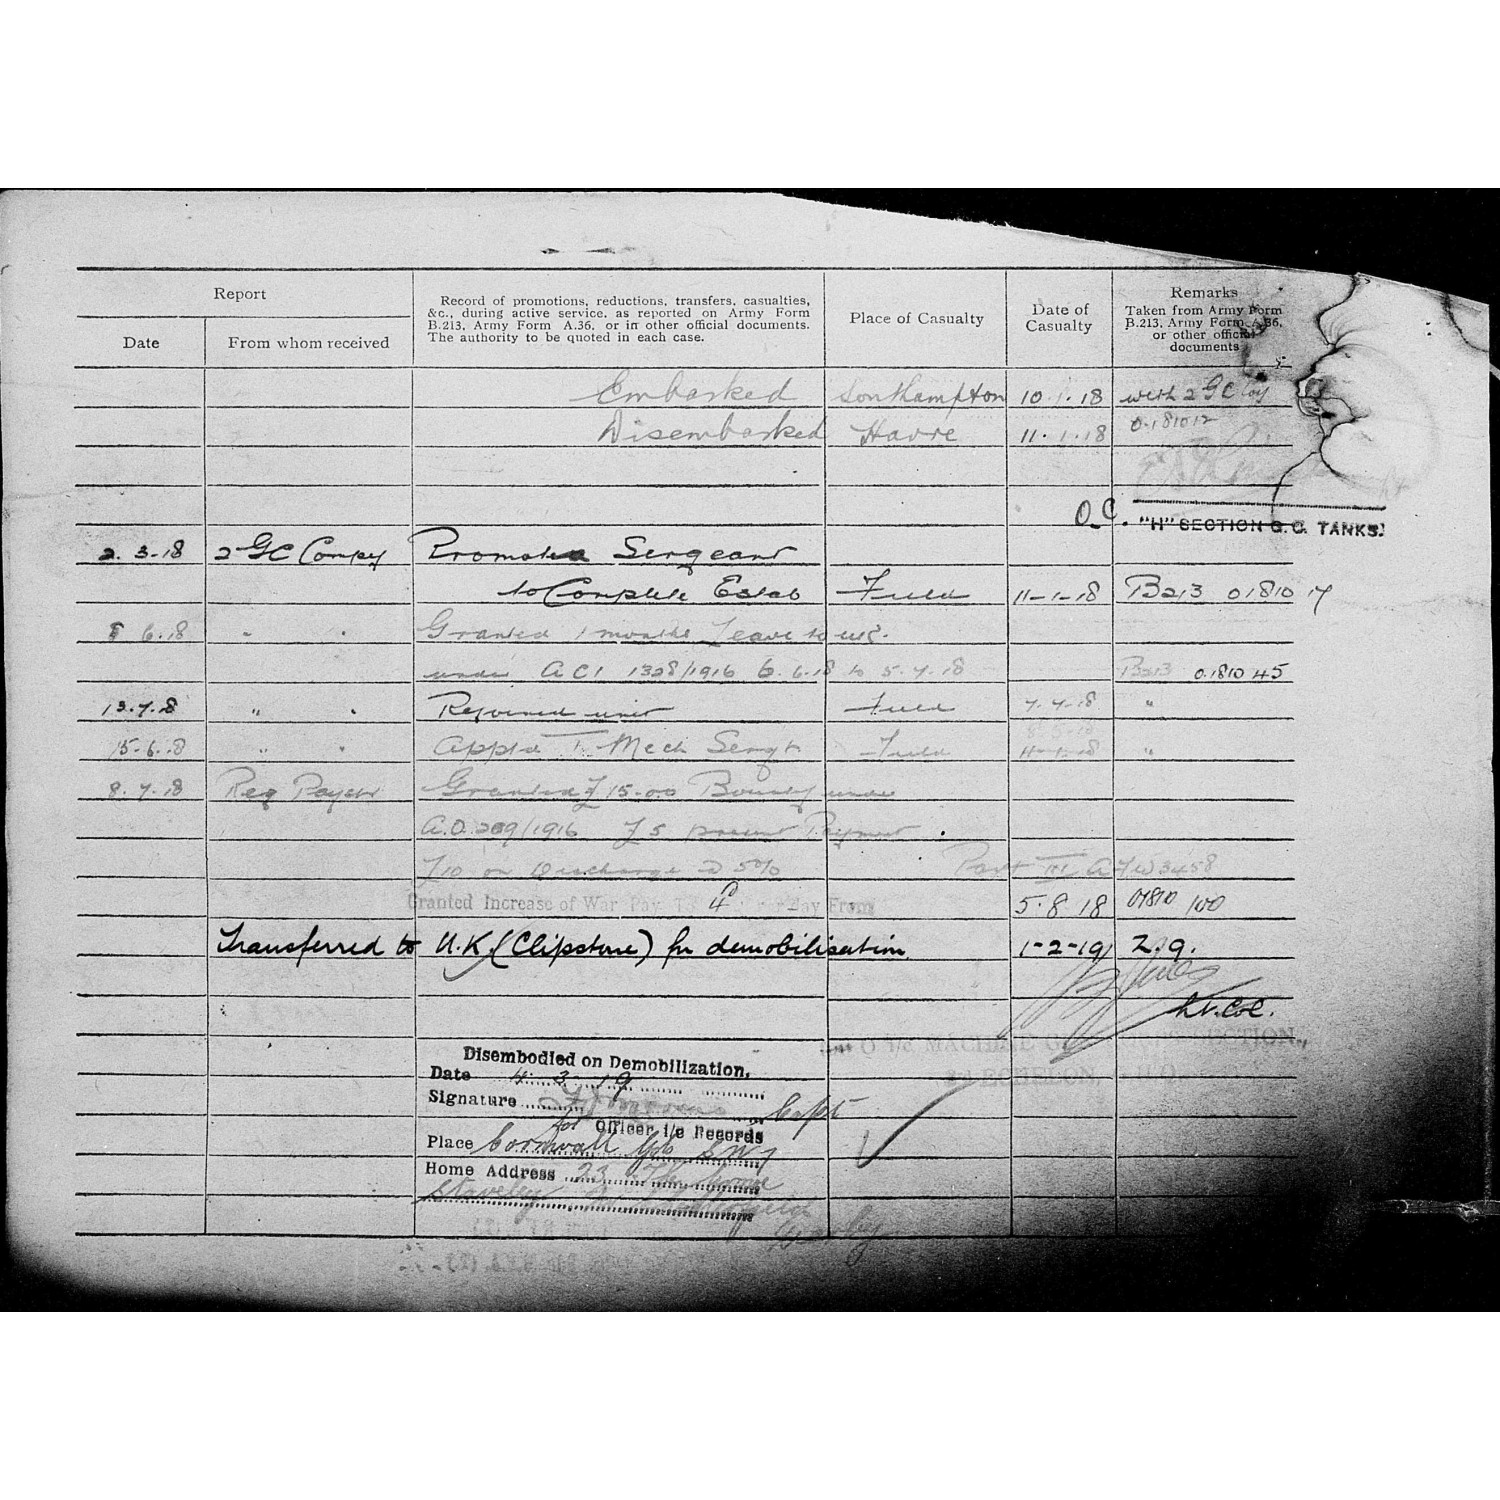 Report
Date
From whom received
Record of promotions, reductions, transfers, casualties,
&c., during active service, as reported on Army Form
B.213, Army Form A.36, or in other official documents.
The authority to be quoted in each case.
Place of Casualty
Date of
Casualty
Remarks
Taken from Army Form
B.213, Army Form A.36,
or other official
documents
Embarked Southampton 10.1.18 with 2 GC Coy
Disembarked Havre 11.1.18 0.1810 12
O.C. "H" SECTION G.C. TANKS.
2.3.18 2 GC Compy Promoted Sergeant
to Complete Estab Field 11-1-18 B213 01810 17
6.18 " " Granted 1 months Leave to UK.
under ACI 1328/1916 6.6.18 to 5.7.18 B213 0.1810 45
13.7.18 " " Rejoined unit Field 7.7.18 "
15.6.18 " " Appd Mech Sergt Field "
8.7.18 Reg Paymr Granted £15-0-0 Bounty under
A.O. 209/1916 £5 present Payment.
£10 on Discharge @ 5% Part III AFW3458
Granted Increase of War Pay 4 per day From 5.8.18 01810 100
Transferred to U.K. (Clipstone) for demobilisation 1-2-19 Z.9.
Lt. Col.
O i/c MACHINE SECTION,
3rd ECHELON,
Disembodied on Demobilization.
Date 4. 3. 19
Signature Capt
for Officer i/c Records
Place Cornwall Gds S.W.7
Home Address 23
Staveley
Derby